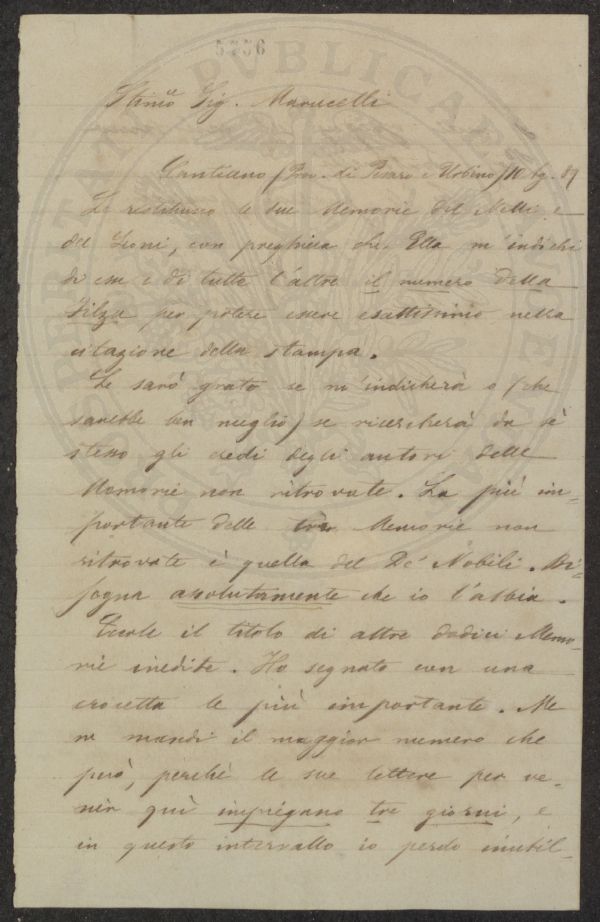 5556
Stimo Sig. Marucelli
Cantiano (Prov. di Pesaro e Urbino) 10 Ag. 89
Le restituisco le sue Memorie del Nelli, e
del Zioni, con preghiera che Ella m'indichi
di esse e di tutte l'altre il numero della
Filza per potere essere esattissimo nella
citazione della stampa.
Le sarò grato se m'indicherà o (che
sarebbe ben meglio) se ricercherà da sè
stesso gli eredi degli autori delle
Memorie non ritrovate. La più im=
portante delle tre Memorie non
ritrovate è quella del De' Nobili. Bi=
sogna assolutamente che io l'abbia.
Eccole il titolo di altre dodici Memo=
rie inedite. Ho segnato con una
crocetta le più importante. Me
ne mandi il maggior numero che
può, perchè le sue lettere per ve=
nir quì impiegano tre giorni, e
in questo intervallo io perdo inutil=